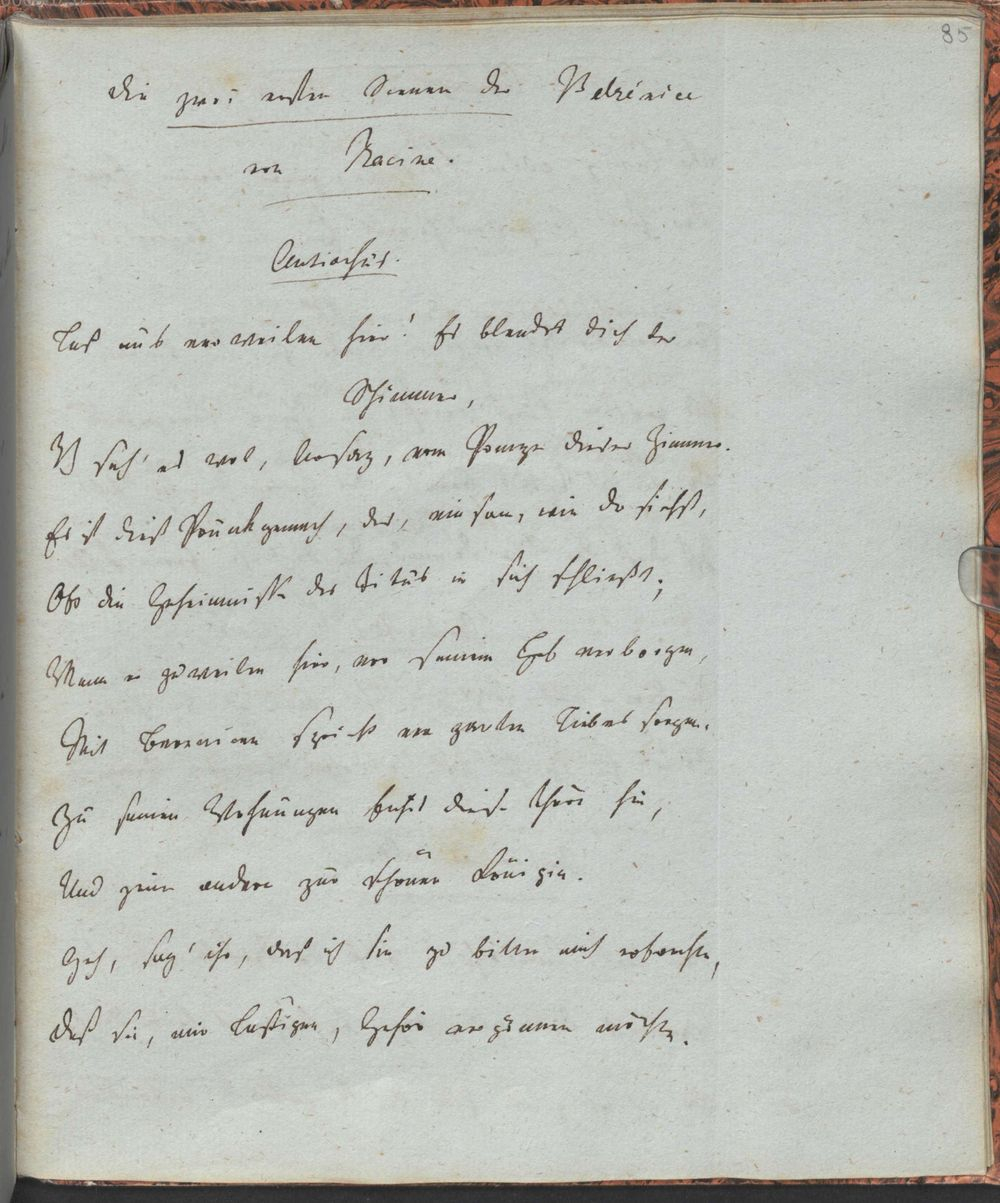 85
Die zwei ersten Scenen der Bérénice
von Racine.
Antiochus.
Laß uns verweilen hier! Es blendet dich der
Schimmer,
Ich seh' es wol, Arsaz, vom Pompe dieser Zimmer.
Es ist dieß Prunkgemach, das, einsam, wie du siehst,
Oft die Geheimnisse des Titus in sich schließt;
Wenn er zuweilen hier, vor seinem Hof verborgen,
Mit Berenicen spricht von zarten Liebessorgen.
Zu seinen Wohnungen führt diese Thür hin,
Und jene andere zur schönen Königin.
Geh, sag' ihr, daß ich sie zu bitten mich
Daß sie, mir Lästigen, Gehör vergönnen möchte.